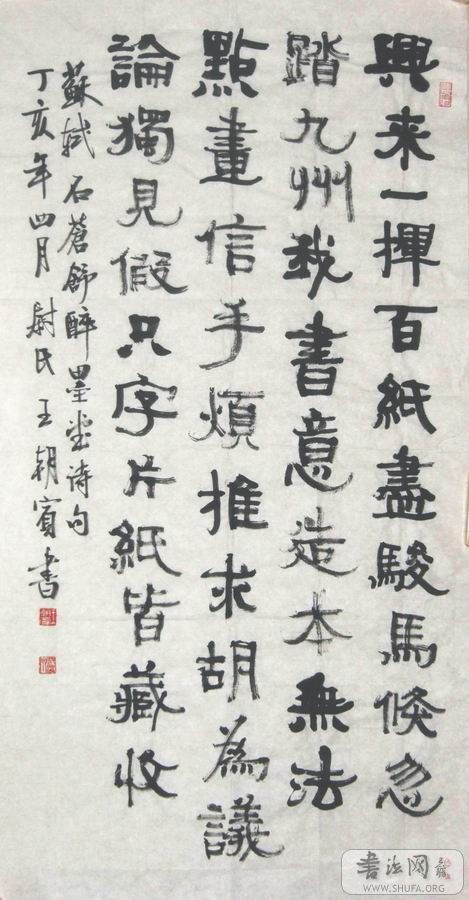 興来一揮百紙盡駿馬倏忽
踏九州我書意造本無法
點畫信手煩推求胡為議
論獨見假只字片紙皆藏收
蘇軾石蒼舒醉墨堂诗句
丁亥年四月尉氏王朝賓書
書法网
WWW.SHUFA.ORG